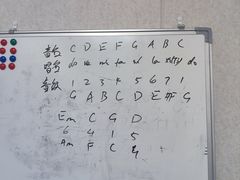 音名 C D E F G A B C
唱名 do re mi fa sol la si do
音级 1 2 3 4 5 6 7 1
G A B C D E #F G
Em C G D
6 4 1 5
Am F C G